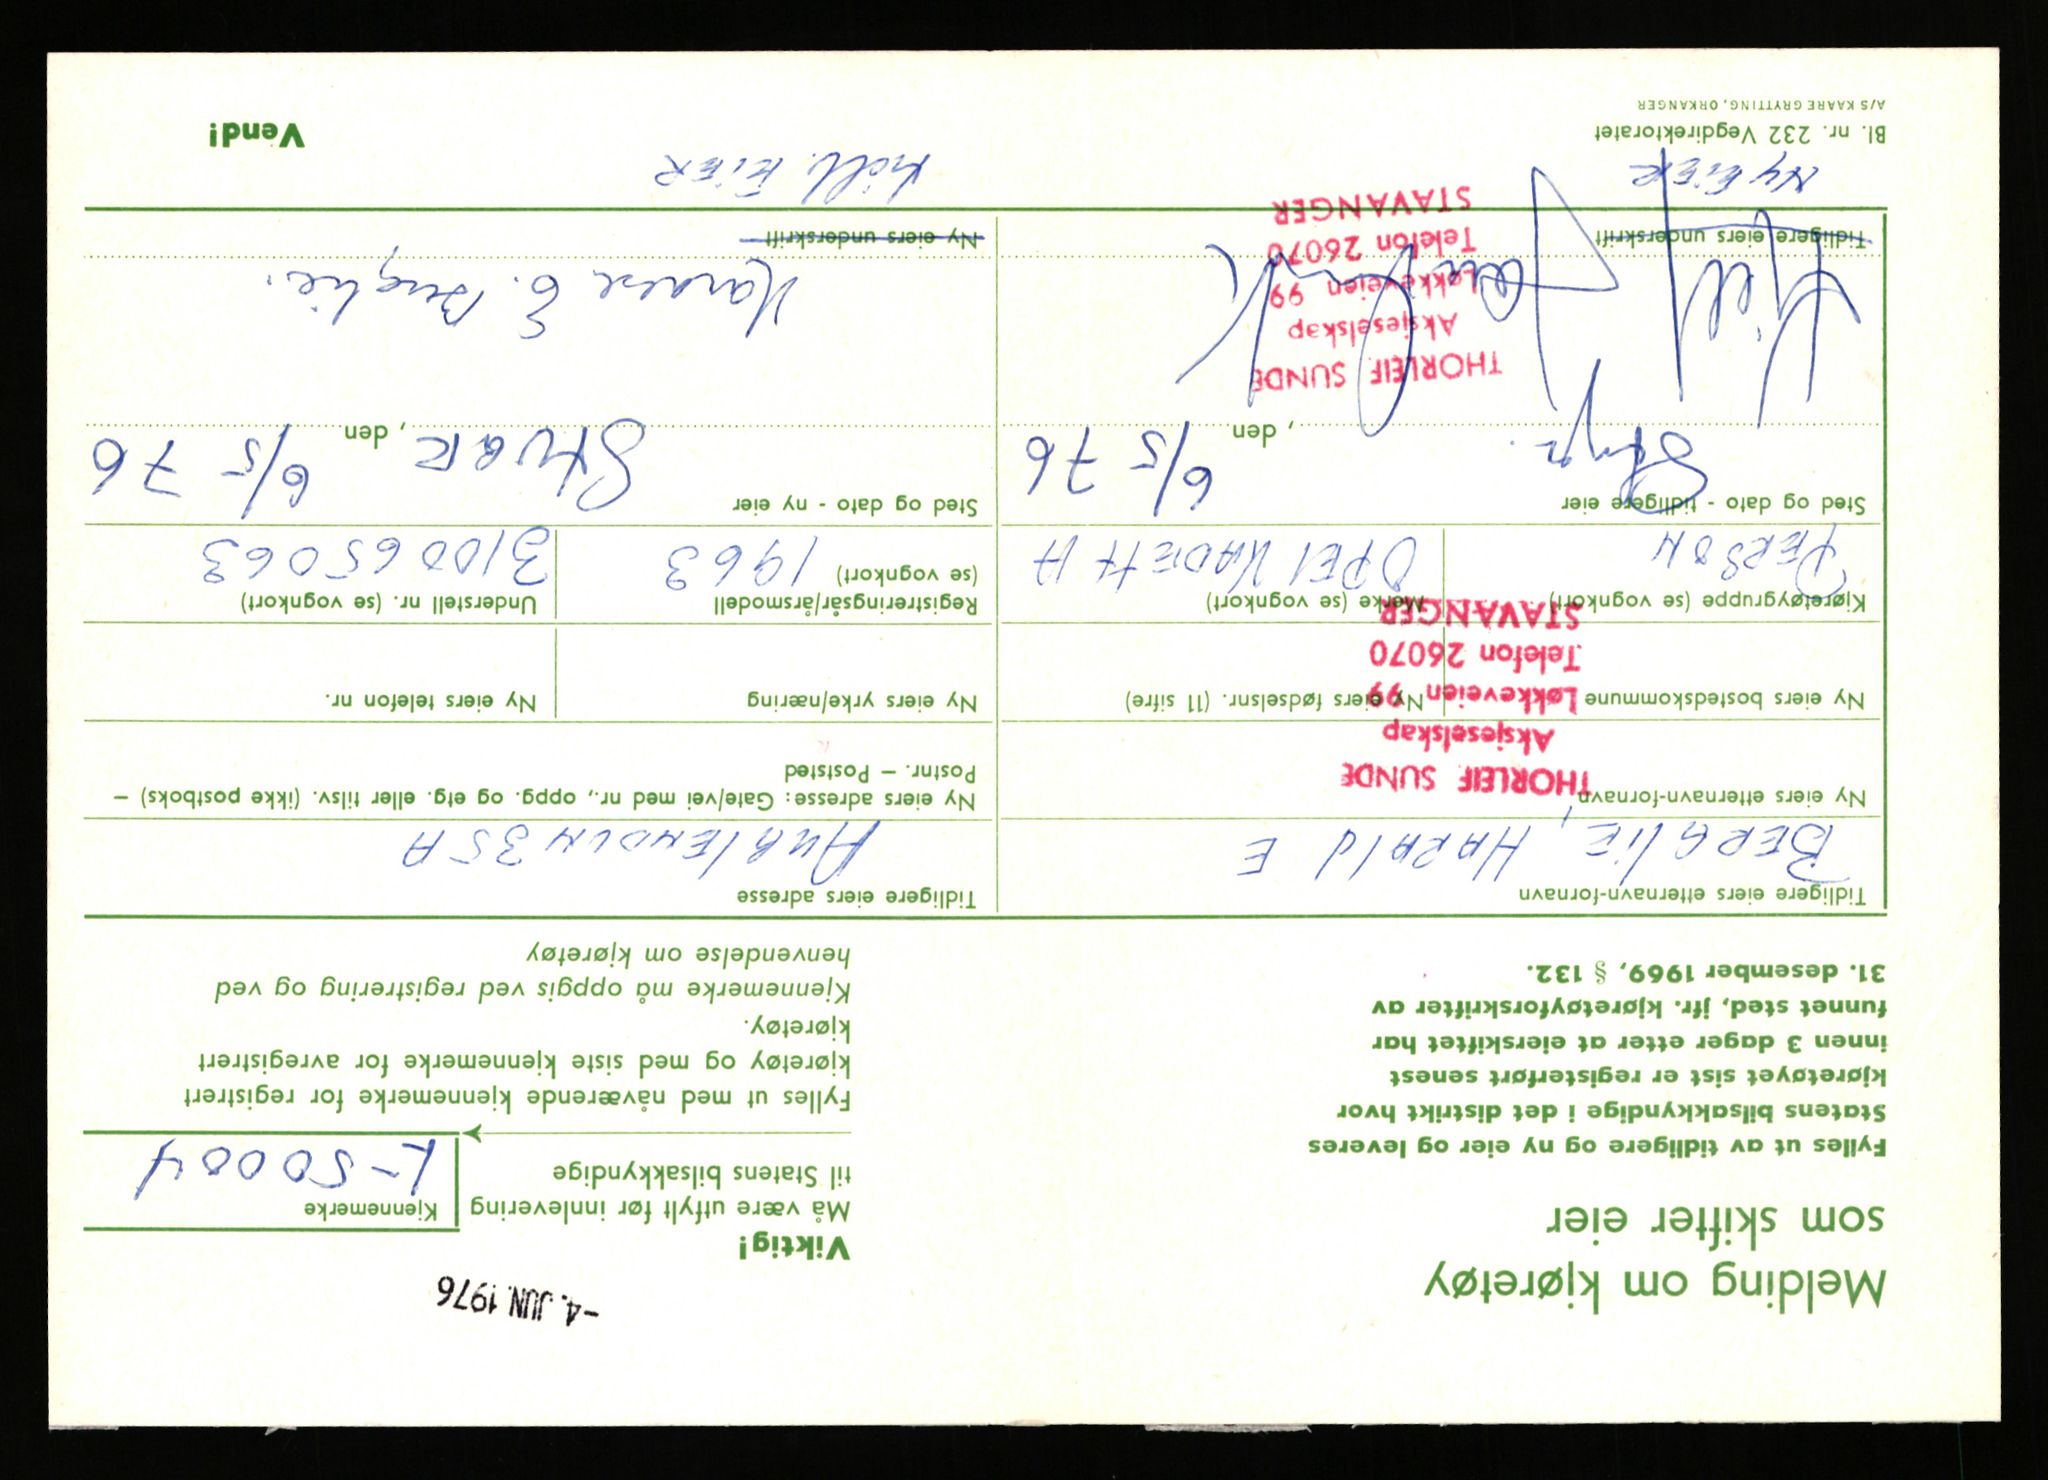 Melding om kjøretøy
som skifter eier
Fylles ut av tidligere og ny eier og leveres
Statens bilsakkyndige i det distrikt hvor
kjøretøyet sist er registerført senest
innen 3 dager etter at eierskiftet har
funnet sted, jfr. kjøretøyforskrifter av
31. desember 1969, § 132.
-4. JUN. 1976
Viktig!
Må være utfylt før innlevering
til Statens bilsakkyndige
Kjennemerke
L-50004
Fylles ut med nåværende kjennemerke for registrert
kjøretøy og med siste kjennemerke for avregistrert
kjøretøy.
Kjennemerke må oppgis ved registrering og ved
henvendelse om kjøretøy
Tidligere eiers etternavn-fornavn
BERGLIE, HARALD E
Tidligere eiers adresse
AUGLENDLN 35A
Ny eiers etternavn-fornavn
THORLEIF SUNDE
Aksjeselskap
Løkkeveien 99
Telefon 26070
STAVANGER
Ny eiers adresse: Gate/vei med nr., oppg. og etg. eller tilsv. (ikke postboks) –
Postnr. – Poststed
Ny eiers bostedskommune
Ny eiers fødselsnr. (11 sifre)
Ny eiers yrke/næring
Ny eiers telefon nr.
Kjøretøygruppe (se vognkort)
PERSON
Merke (se vognkort)
OPEL KADETT A
Registreringsår/årsmodell
(se vognkort)
1963
Understell nr. (se vognkort)
310065063
Sted og dato - tidligere eier
, den
6/5 76
Sted og dato - ny eier
, den
6/5 76
THORLEIF SUNDE
Aksjeselskap
Løkkeveien 99
Telefon 26070
STAVANGER
Harald E. Berglie.
Tidligere eiers underskrift
Ny eiers underskrift
NY EIER
EIER
Bl. nr. 232 Vegdirektoratet
A/S KAARE GRYTTING, ORKANGER
Vend!